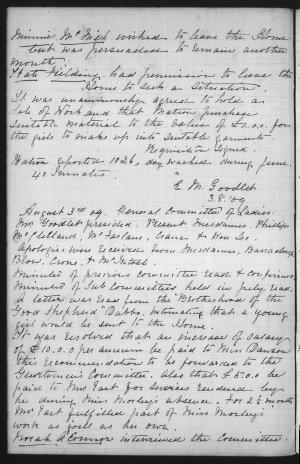 Minnie Mc wished to leave the Home
but was persuaded to remain another
month.
Kate Fielding had permission to leave the
Home to seek a Situation.
It was unanimously agreed to hold a
Sale of Work and that Matron purchase
Suitable material to the value of for
the girls to make up into suitable garments
Requisition Signed.
Matron reported 1026 day washed during June.
40 Inmates
E. M. Goodlet
3.8.09
August 3rd 09. General Committee of Ladies.
Mrs Goodlet presided. Present Mesdames Phillips
& Hon Sec.
Apologies were received from Mesdames,
Crone, & McIntosh.
Minutes of previous committee read & confirmed
Minutes of Sub Committees held in July, read.
A letter was read from the "Brotherhood of the
Good Shepherd" Dubbo, intimating that a young
girl would be sent to the Home
It was resolved that an increase of salary
of £10.0.0 per annum be paid to Miss
this recommendation to be forwarded to the
Gentlemen's Committee. Also that £5.0.0 be
paid to Mrs East for services rendered by
her during Miss Morley's absence. For 2½ months
Mrs East fulfilled part of Miss Morley's
work as well as her own.
Norah O'Connor interviewed the Committee.